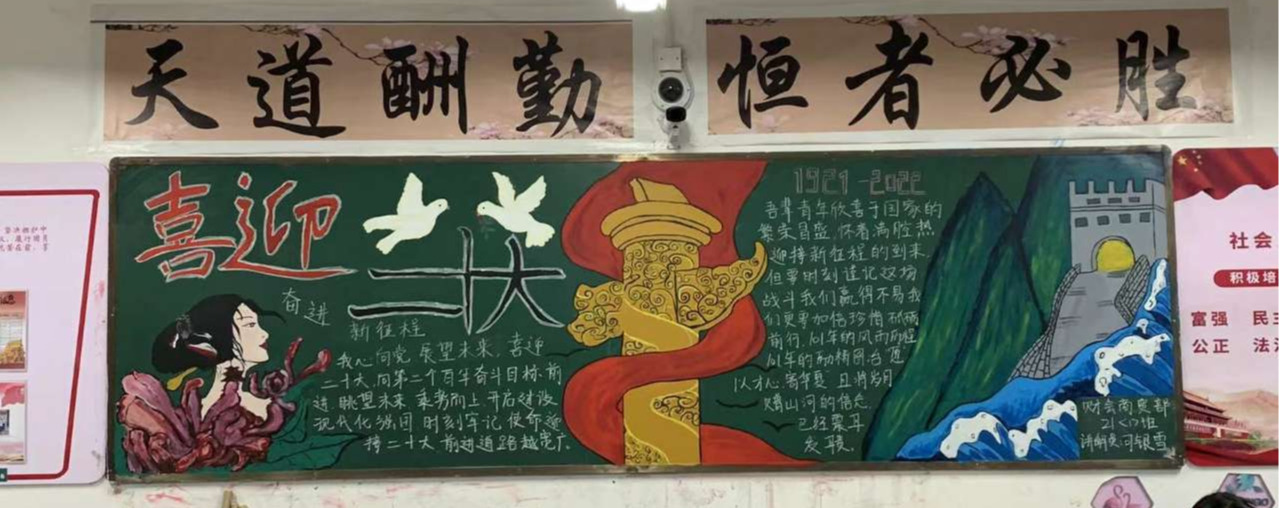 天道酬勤
恒者必胜
喜迎
二十大
奋进
新征程
我心向党 展望未来,喜迎
二十大,向第二个百年奋斗目标,前
进,眺望未来 乘势而上 开启建设
现代化强国 时刻牢记 使命 迎
接二十大 前进道路越宽广
1921-2022
吾辈青年欣喜于国家的
繁荣昌盛,怀着满腔热
迎接新征程的到来,
但要时刻谨记这场
战斗我们赢得不易我
们更要加倍珍惜砥砺
前行,百年的风雨
百年的励精图治
以才心 寄华夏 且将岁月
赠山河的信念
已经
财会商贸部
社会
积极培
富强 民主
公正 法